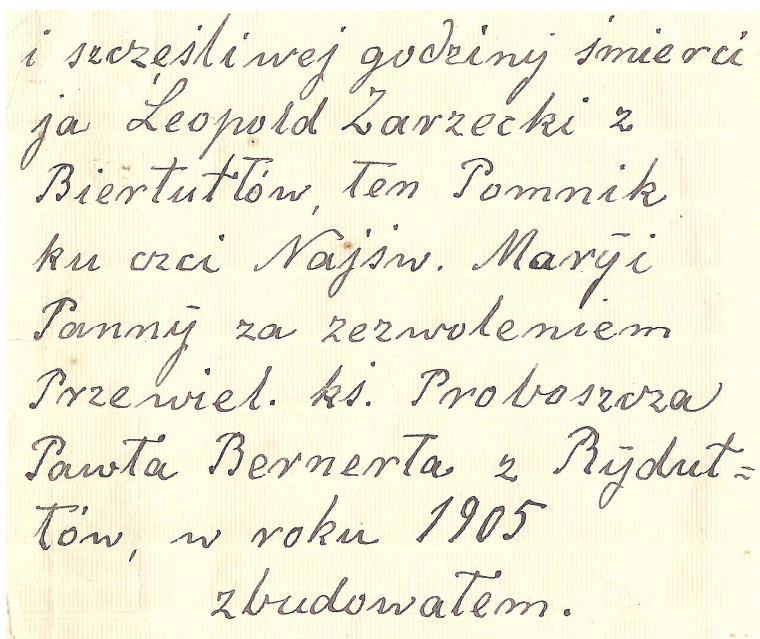 i szczęśliwej godziny śmierci
ja Leopold Zarzecki z
Biertułtów, ten Pomnik
ku czci Najśw. Maryi
Panny za zezwoleniem
Przewiel. ks. Proboszcza
Pawła Bernerta z Ryduł=
tów, w roku 1905
zbudowałem.